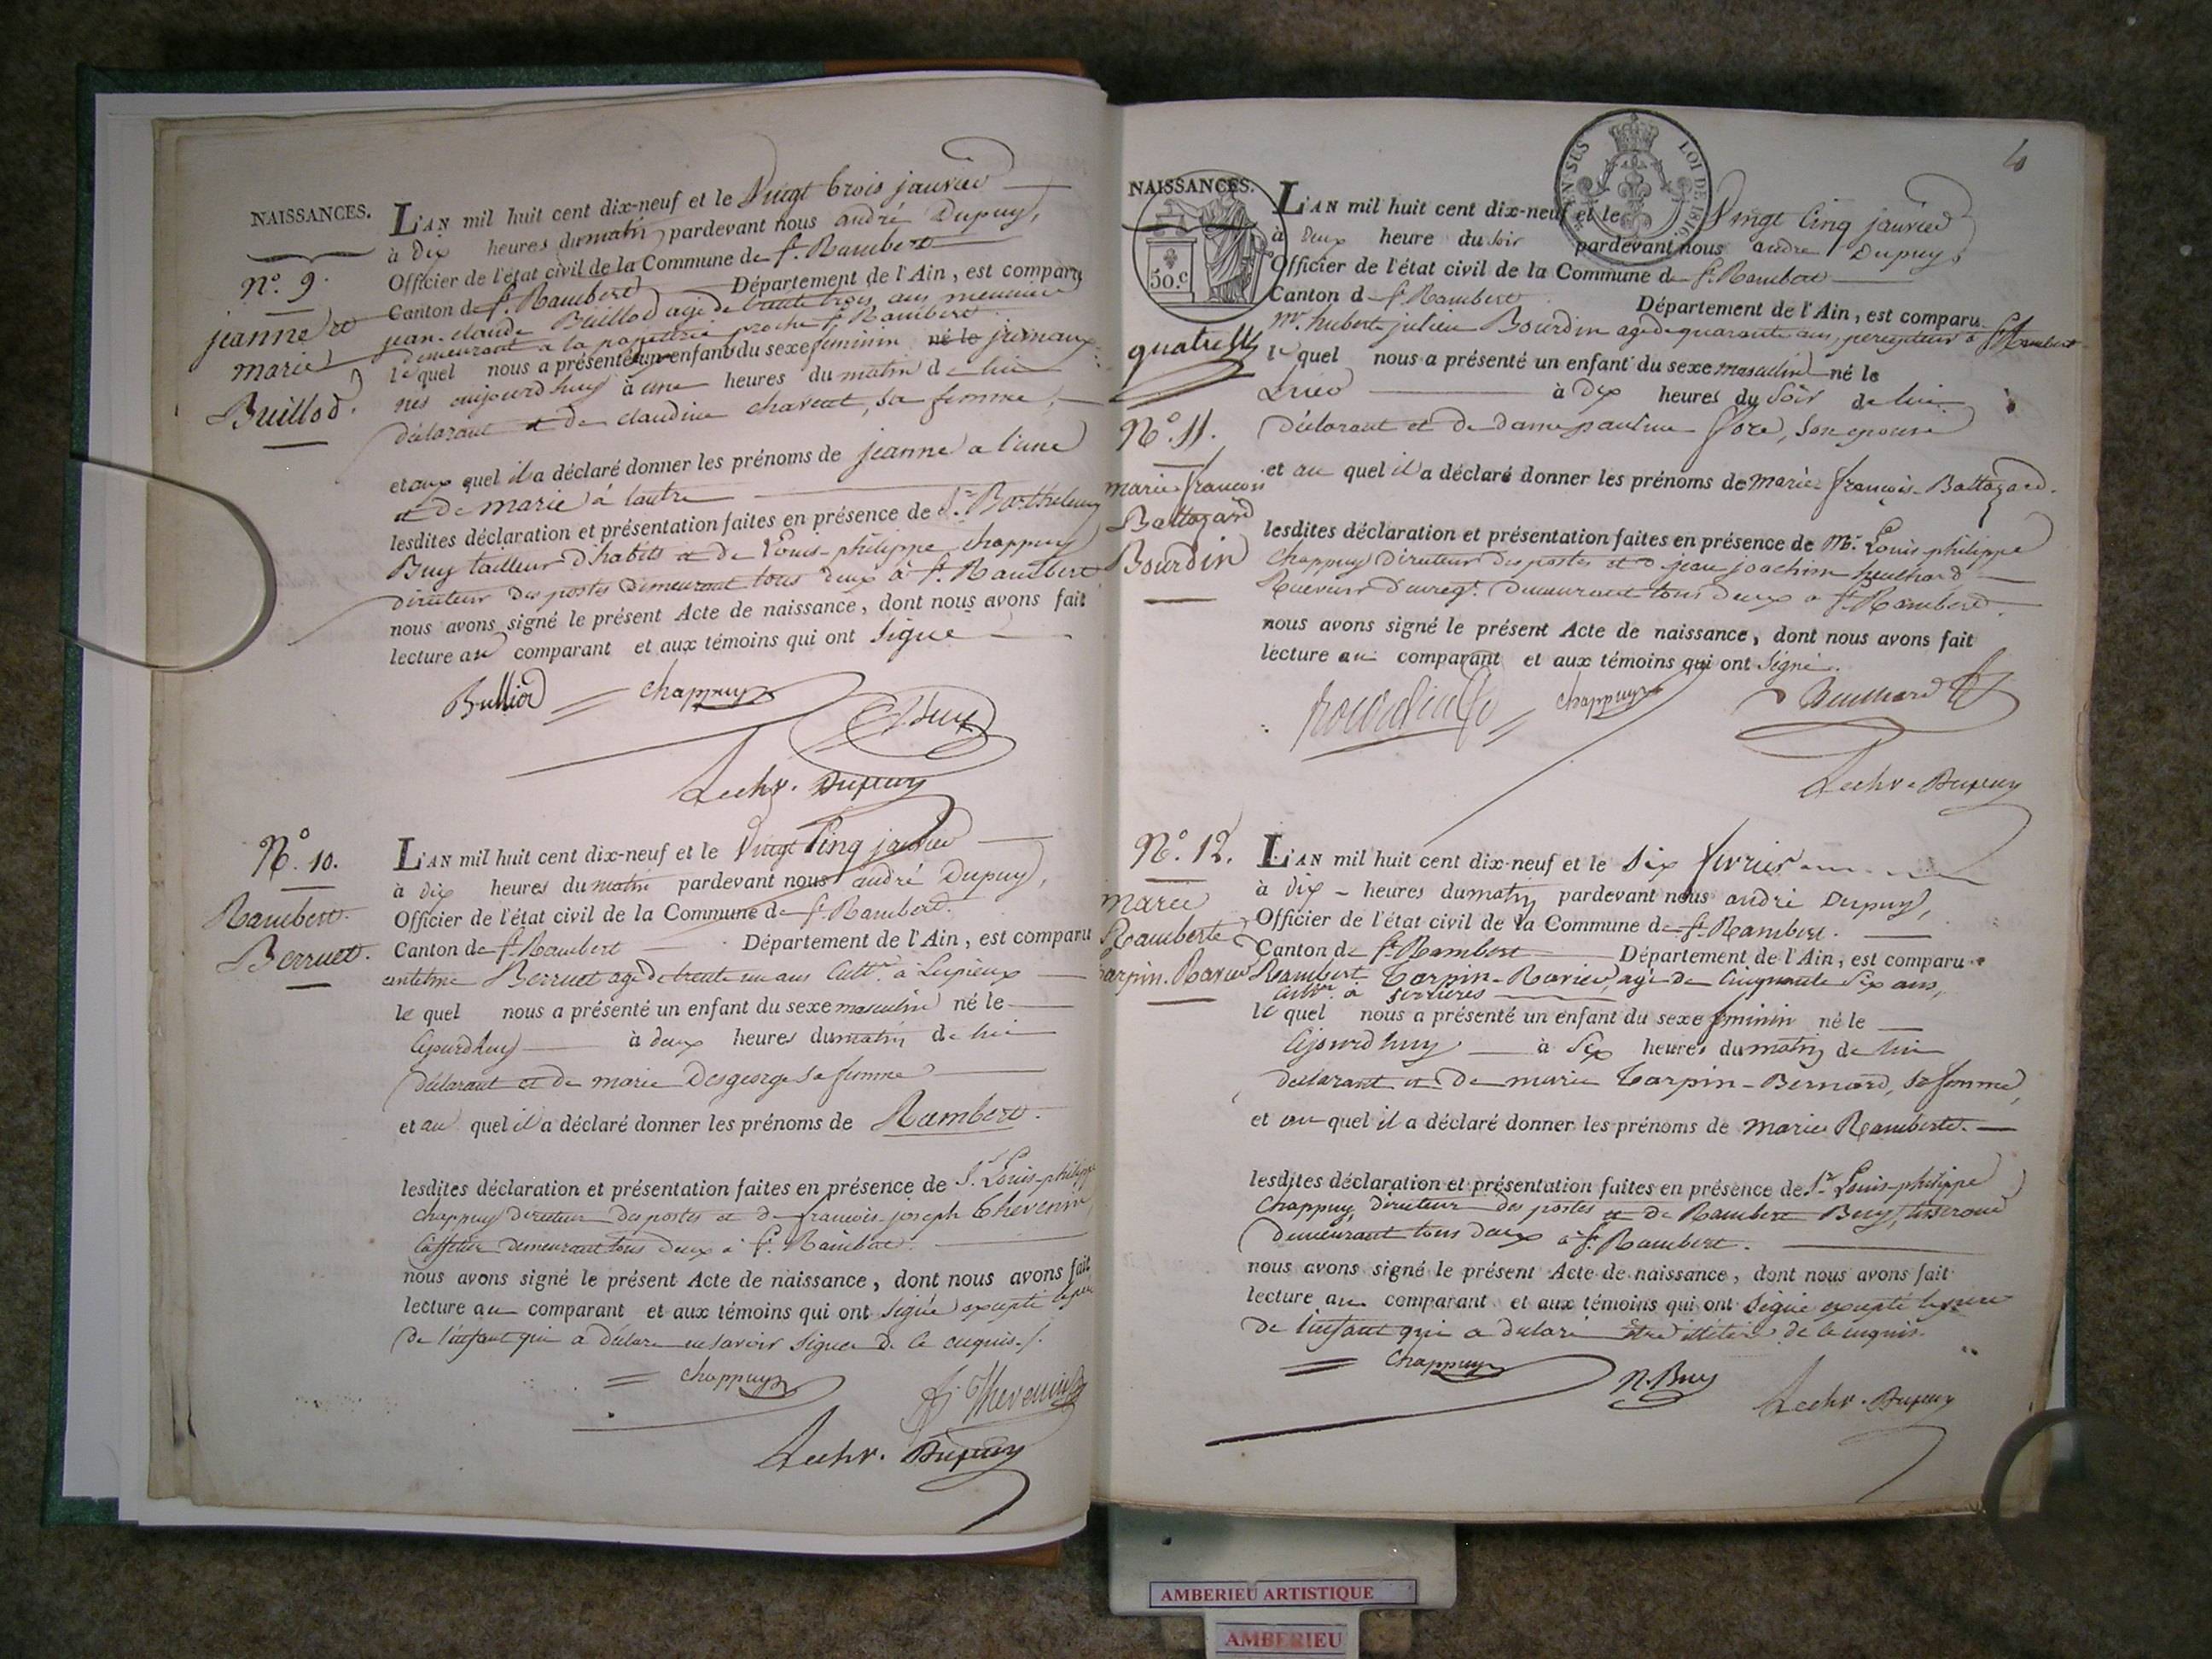 NAISSANCES.
N.° 9.
jeanne et
marie
Buillod.
L'AN mil huit cent dix-neuf et le Vingt trois janvier
à dix heures du matin pardevant nous andré Dupuy,
Officier de l'état civil de la Commune de St. Rambert
Canton de St. Rambert Département de l'Ain, est comparu
jean-claude Buillod agé de trente trois ans meunier
demeurant a la papettrie proche St. Rambert
le quel nous a présenté un enfant du sexe feminin né le jumeaux
nés aujourd'huy à une heures du matin de lui
déclarant et de claudine charvet, sa femme,
et aux quel il a déclaré donner les prénoms de jeanne a l'une
et de marie à lautre
lesdites déclaration et présentation faites en présence de Sr. Barthelemy
Buy tailleur d'habits et de Louis-philippe chappuy
directeur des postes demeurant tous deux à St. Rambert
nous avons signé le présent Acte de naissance, dont nous avons fait
lecture au comparant et aux témoins qui ont signé
Bulliod chappuy Buy
Dupuy
N.° 10.
Rambert
Berruet.
L'AN mil huit cent dix-neuf et le Vingt Cinq janvier
à dix heures du matin pardevant nous andré Dupuy,
Officier de l'état civil de la Commune de St. Rambert.
Canton de St. Rambert Département de l'Ain, est comparu
antelme Berruet agé de trente un ans Cultr. à Lupieux
le quel nous a présenté un enfant du sexe masculin né le
cejourdhuy à deux heures du matin de lui
déclarant et de marie Desgeorge sa femme
et au quel il a déclaré donner les prénoms de Rambert.
lesdites déclaration et présentation faites en présence de Sr. Louis-philippe
chappuy directeur des postes et de francois-joseph Thevenin,
Caffetier demeurant tous deux à St. Rambert.
nous avons signé le présent Acte de naissance, dont nous avons fait
lecture au comparant et aux témoins qui ont signé excepté le père
de l'enfant qui a déclaré ne savoir signer de ce enquis./.
chappuy Thevenin
Dupuy
10
EN SUS LOI DE 1816.
50.c
NAISSANCES.
quatre
N.° 11.
marie francois
Baltazard
Bourdin
L'AN mil huit cent dix-neuf et le Vingt Cinq janvier
à deux heure du soir pardevant nous andre Dupuy,
Officier de l'état civil de la Commune de St. Rambert
Canton d St. Rambert Département de l'Ain, est comparu
mr. hubert julien Bourdin agé de quarante ans, percepteur a St. Rambert
le quel nous a présenté un enfant du sexe masculin né le
à dix heures du soir de lui
déclarant et de dame pauline Jore, son epouse
et au quel il a déclaré donner les prénoms de marie francois-Baltazard.
lesdites déclaration et présentation faites en présence de Mr. Louis philippe
chappuy directeur des postes et d jean joachim heulhard
Receveur d'enregt. demeurant tous deux a St. Rambert.
nous avons signé le présent Acte de naissance, dont nous avons fait
lecture au comparant et aux témoins qui ont signé.
Bourdin chappuy heulhard
Dupuy
N.° 12.
marie
Ramberte
tarpin-Ravier
L'AN mil huit cent dix-neuf et le Six fevrier
à dix heures du matin pardevant nous andré Dupuy,
Officier de l'état civil de la Commune de St. Rambert.
Canton de St. Rambert Département de l'Ain, est comparu
Rambert Tarpin-Ravier, agé de Cinquante Six ans,
Cultr. à serrieres
le quel nous a présenté un enfant du sexe feminin né le
Cejourd'huy à Six heures du matin de lui
declarant et de marie Tarpin-Bernard, sa femme,
et au quel il a déclaré donner les prénoms de marie Ramberte.
lesdites déclaration et présentation faites en présence de Sr. Louis-philippe
chappuy, directeur des postes et de Rambert Buy, tisserand
demeurant tous deux a St. Rambert.
nous avons signé le présent Acte de naissance, dont nous avons fait
lecture au comparant et aux témoins qui ont signé excepté le père
de l'enfant qui a déclaré être illitéré de ce enquis.
chappuy R. Buy Dupuy
AMBERIEU ARTISTIQUE
AMBERIEU